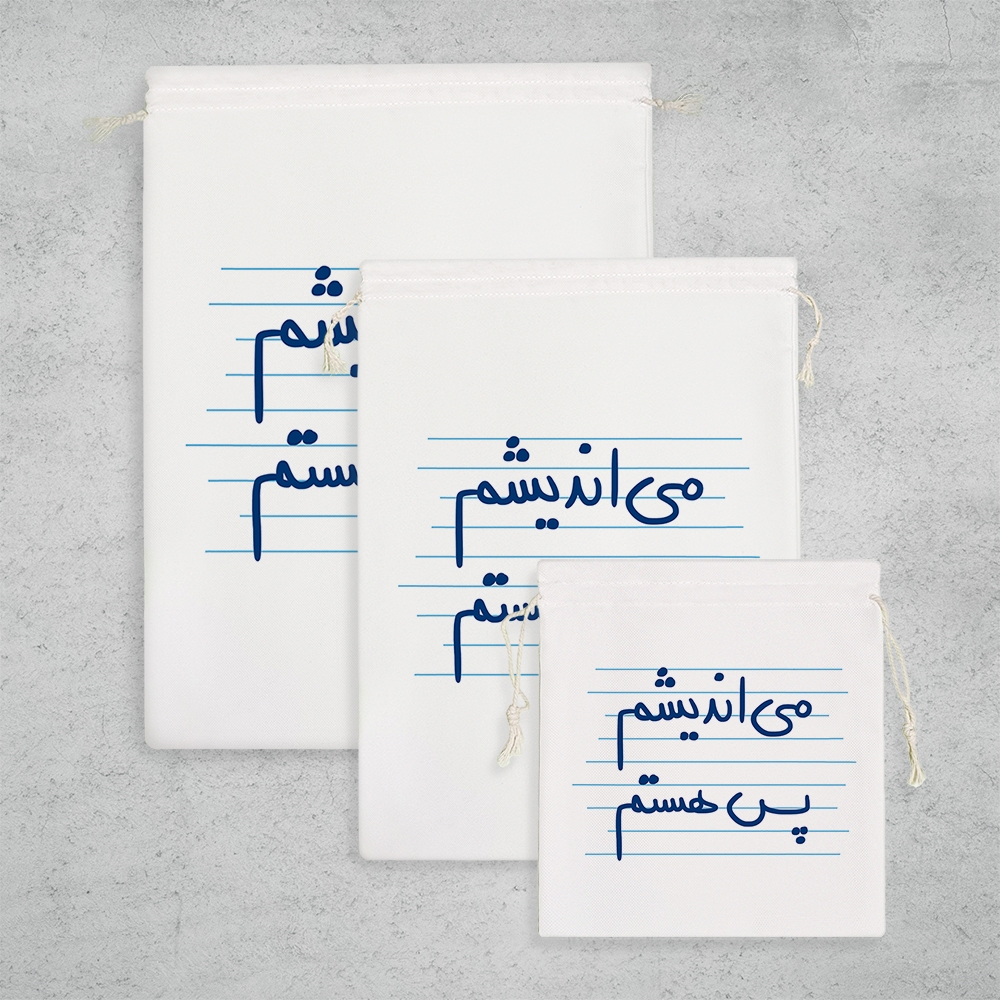 یشم
ستم
می‌اندیشم
ستم
می‌اندیشم
پس هستم